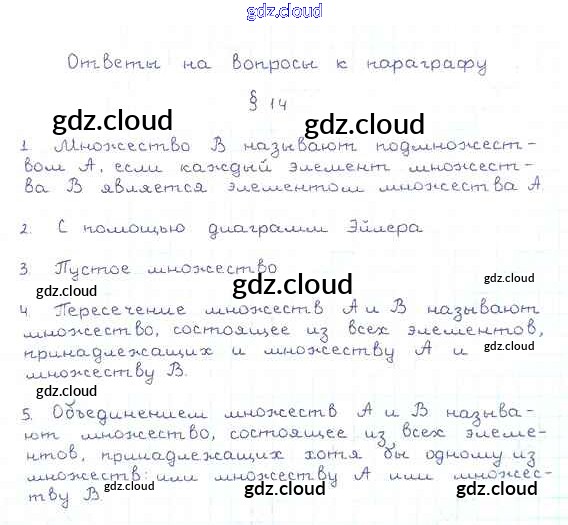 gdz.cloud
Ответы на вопросы к параграфу
§ 14
gdz.cloud
gdz.cloud
1. Множество B называют подмножест-
вом A, если каждый элемент множест-
ва B является элементом множества A
2. С помощью диаграмм Эйлера
3. Пустое множество
gdz.cloud
gdz.cloud
gdz.cloud
4. Пересечение множеств A и B называют
множество, состоящее из всех элементов,
принадлежащих и множеству A и
gdz.cloud
множеству B.
gdz.cloud
5. Объединением множеств A и B называ-
ют множество, состоящее из всех элеме-
gdz.cloud
gdz.cloud
нтов, принадлежащих хотя бы одному из
множеств: или множеству A или множес-
тву B.
gdz.cloud
gdz.cloud
gdz.cloud